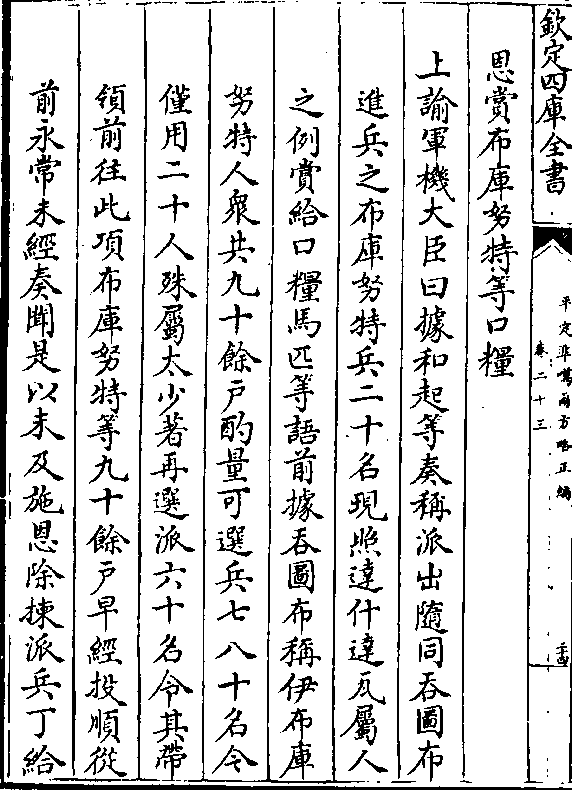 欽定四庫全書
平定準噶爾方略正編
卷二十三
恩賞布庫努特等口糧
上諭軍機大臣曰據和起等奏稱派出隨同吞圖布
進兵之布庫努特兵二十名現照達什達瓦屬人
之例賞給口糧馬匹等語前據吞圖布稱伊布庫
努特人衆共九十餘戸酌量可選兵七八十名今
僅用二十人殊屬太少著再選派六十名令其帶
領前往此項布庫努特等九十餘戸早經投順從
前永常未經奏聞是以未及施恩除揀派兵丁給